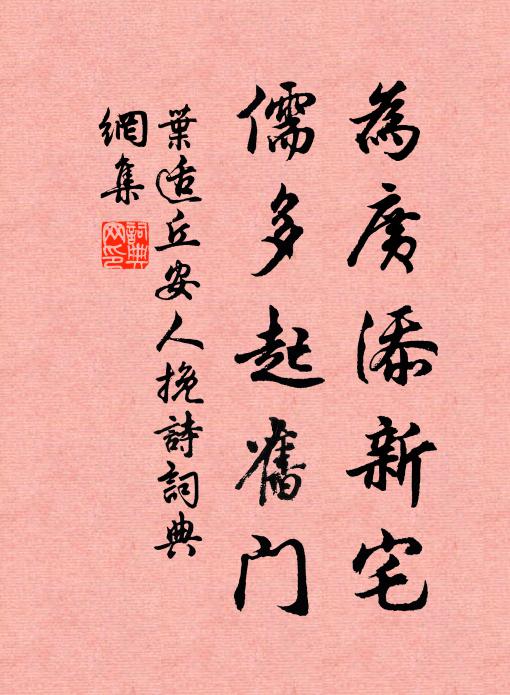 為廣添新宅
儒多起舊門
葉适丘安人挽詩詞典
網集
詞典
网印